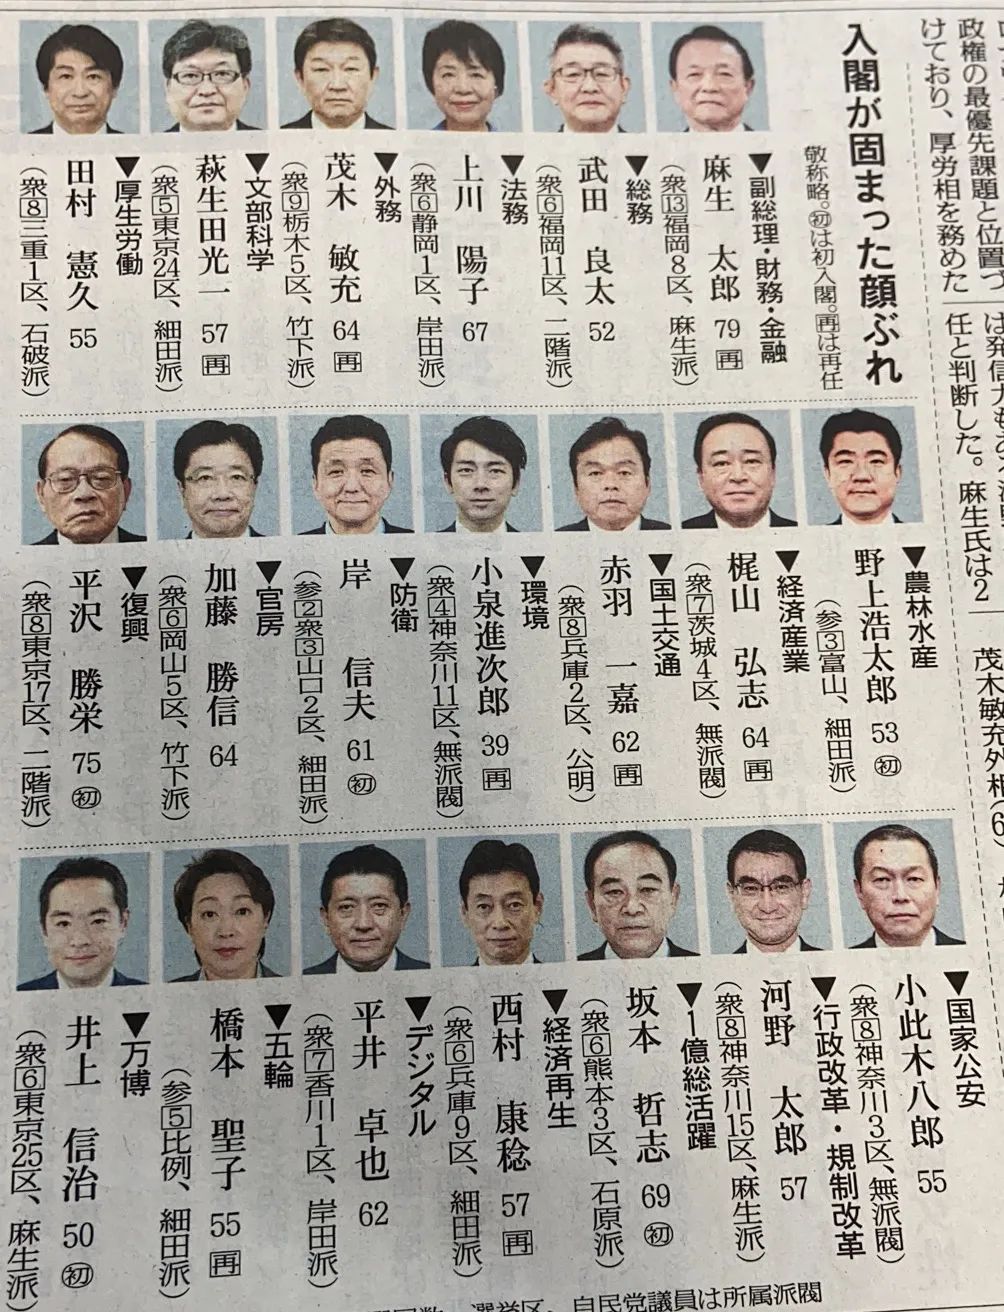 政権の最優先課題と位置づ
けており、厚労相を務めた
任と判断した。麻生氏は2
茂木敏充外相(6)
入閣が固まった顔ぶれ
敬称略。㊞は初入閣。再は再任
▼副総理・財務・金融
麻生 太郎 79 再
(衆13福岡8区、麻生派)
▼総務
武田 良太 52
(衆6福岡11区、二階派)
▼法務
上川 陽子 67
(衆6静岡1区、岸田派)
▼外務
茂木 敏充 64 再
(衆9栃木5区、竹下派)
▼文部科学
萩生田光一 57 再
(衆5東京24区、細田派)
▼厚生労働
田村 憲久 55
(衆8三重1区、石破派)
▼農林水産
野上浩太郎 53 初
(参3富山、細田派)
▼経済産業
梶山 弘志 64 再
(衆7茨城4区、無派閥)
▼国土交通
赤羽 一嘉 62 再
(衆8兵庫2区、公明)
▼環境
小泉進次郎 39 再
(衆4神奈川11区、無派閥)
▼防衛
岸 信夫 61 初
(参2衆3山口2区、細田派)
▼官房
加藤 勝信 64
(衆6岡山5区、竹下派)
▼復興
平沢 勝栄 75 初
(衆8東京17区、二階派)
▼国家公安
小此木八郎 55
(衆8神奈川3区、無派閥)
▼行政改革・規制改革
河野 太郎 57
(衆8神奈川15区、麻生派)
▼1億総活躍
坂本 哲志 69 初
(衆6熊本3区、石原派)
▼経済再生
西村 康稔 57 再
(衆6兵庫9区、細田派)
▼デジタル
平井 卓也 62
(衆7香川1区、岸田派)
▼五輪
橋本 聖子 55 再
(参5比例、細田派)
▼万博
井上 信治 50 初
(衆6東京25区、麻生派)
選挙区、自民党議員は所属派閥